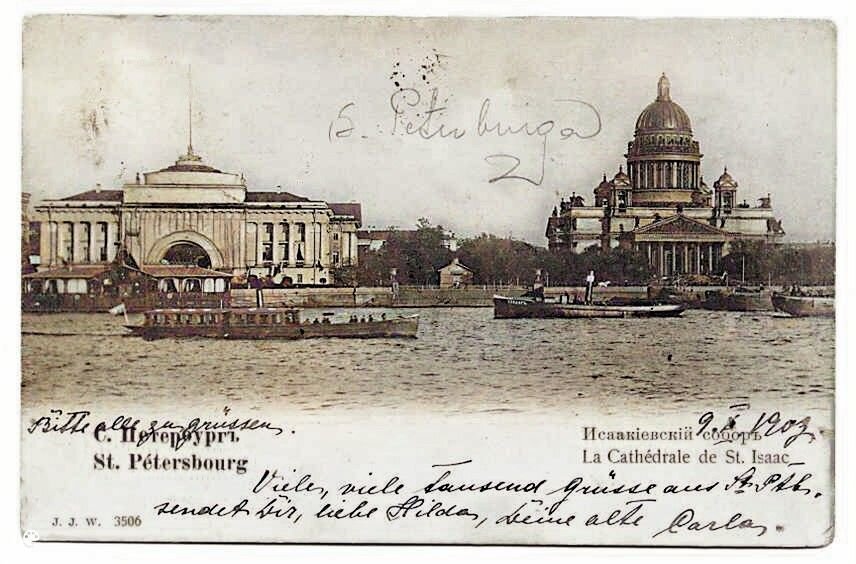 S. Peterburga
2
Bitte alle zu grüssen.
С. Петербургъ.
St. Pétersbourg
Исаакіевскій соборъ
La Cathédrale de St. Isaac
Viele, viele tausend Grüsse aus St. Ptb.
sendet Dir, liebe Hilda, Deine alte Carla.
J. J. W. 3506